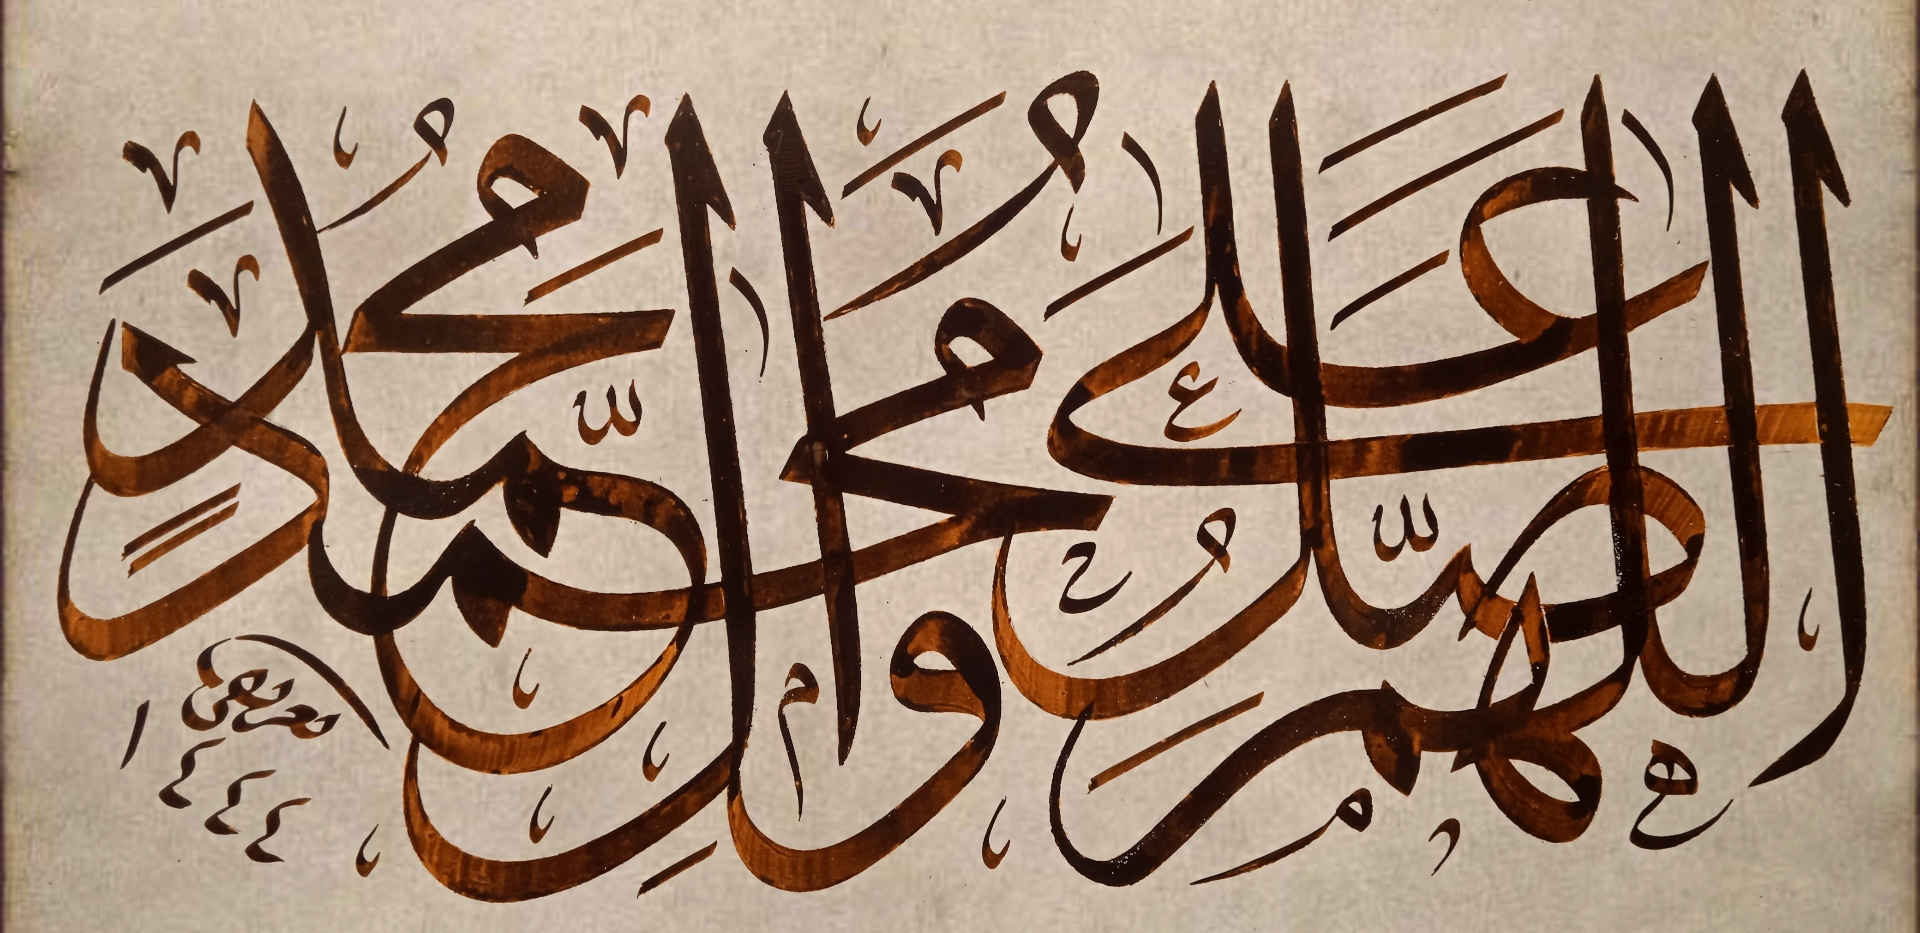 اللهم صل على محمد وال محمد
١٤٤٤